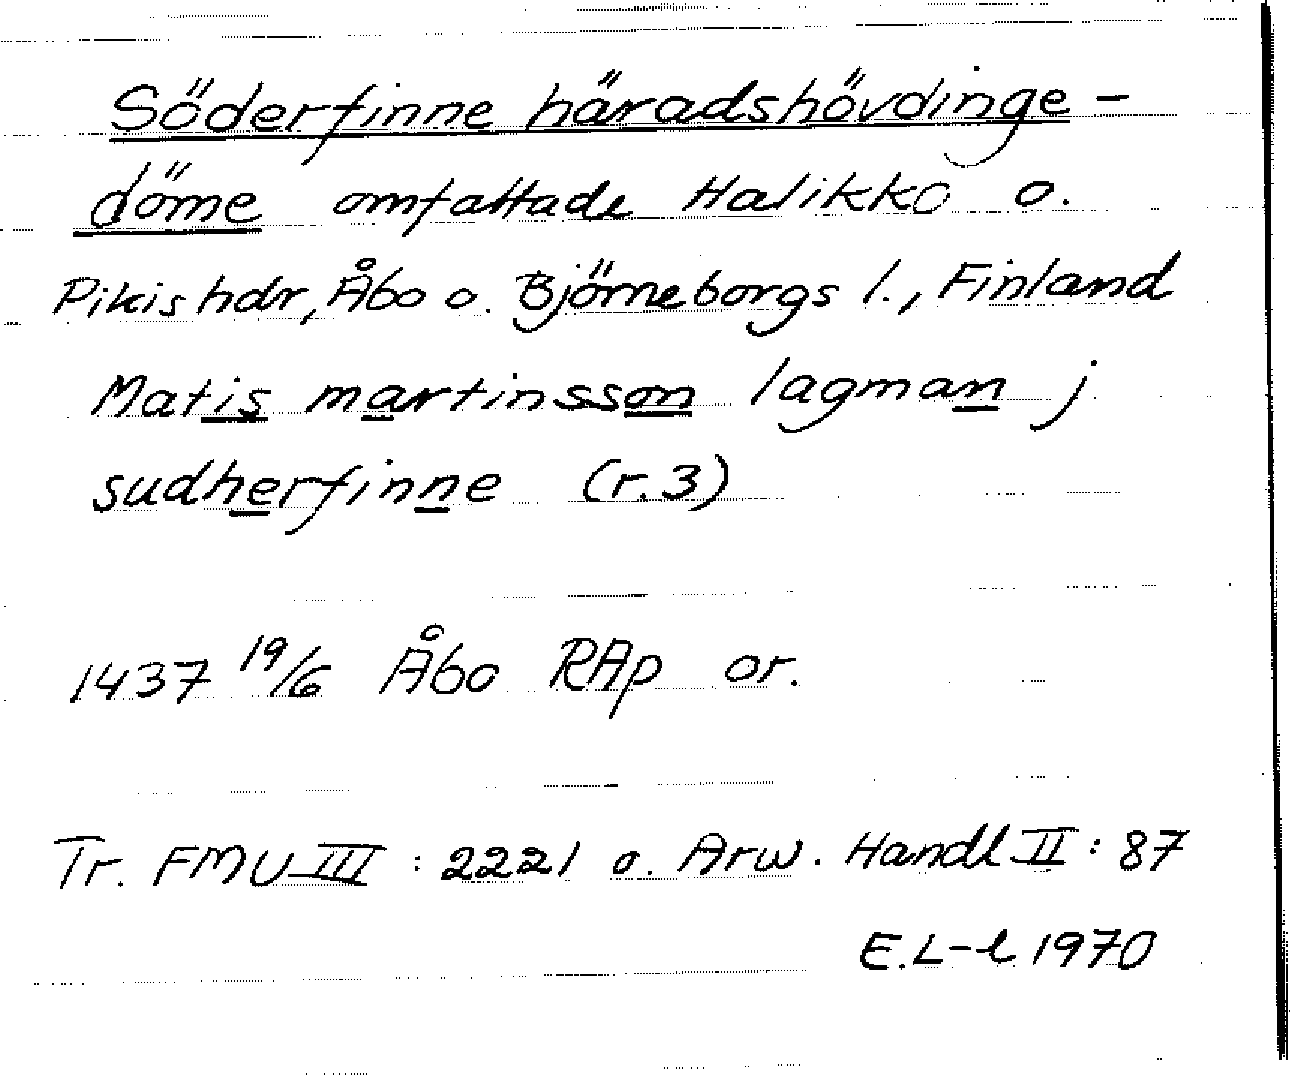 Söderfinne häradshövdinge-
döme omfattade Halikko o.
Pikis hdr, Åbo o. Björneborgs l., Finland
Matis martinsson lagman j
sudherfinne (r.3)
1437 19/6 Åbo RAp or.
Tr. FMU III : 2221 o. Arw. Handl II : 87
E.L-l 1970